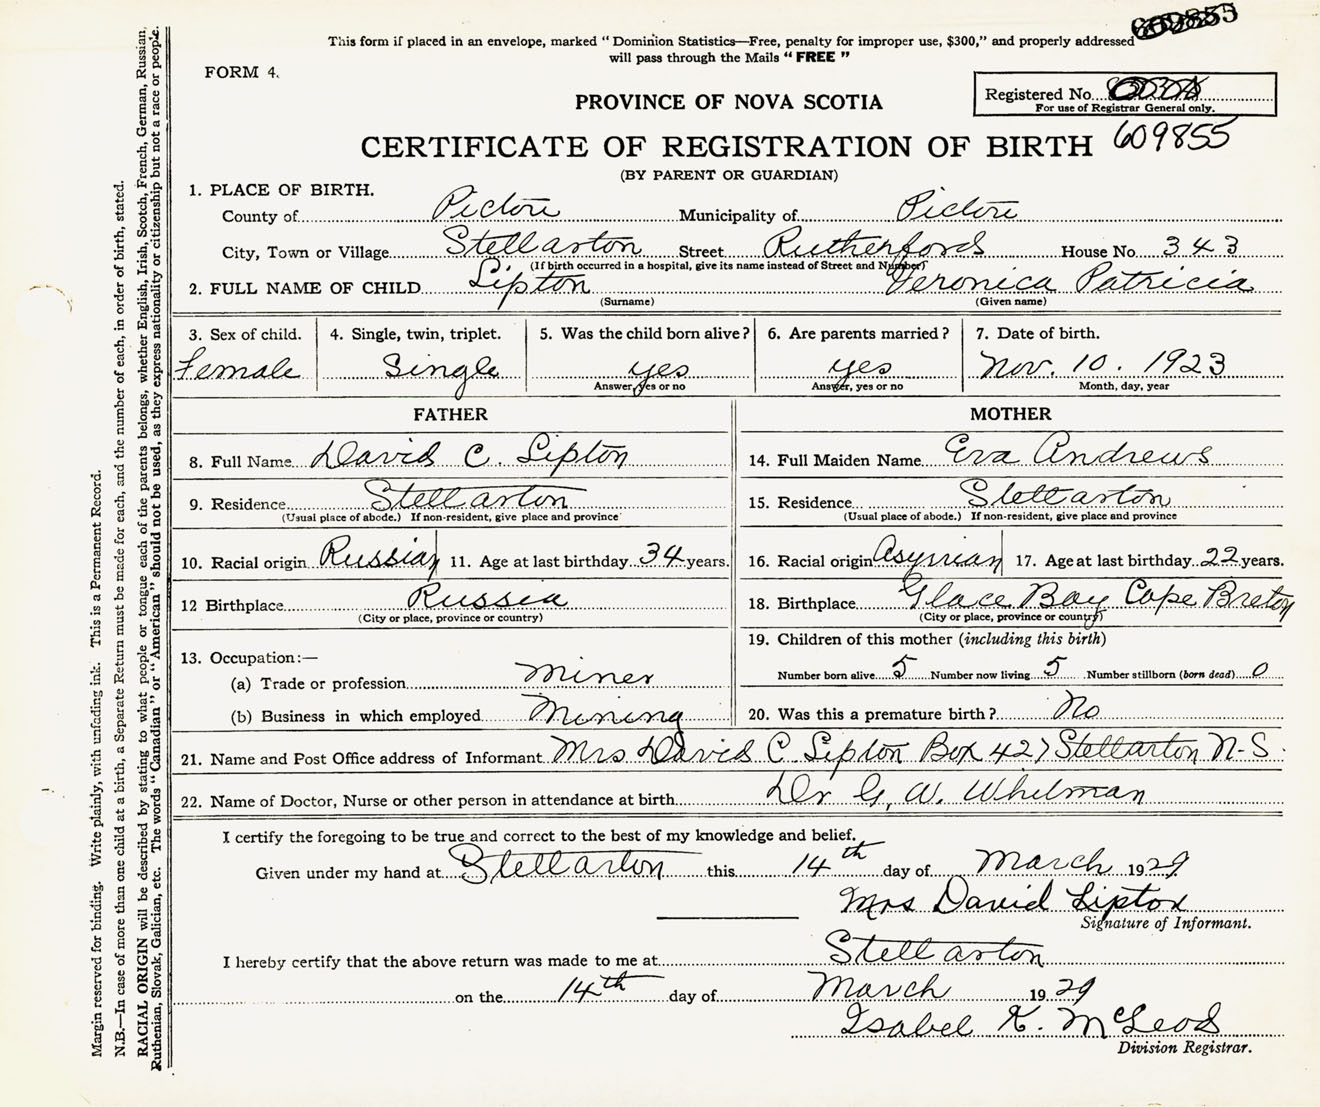 609855
This form if placed in an envelope, marked " Dominion Statistics—Free, penalty for improper use, $300," and properly addressed
will pass through the Mails " FREE "
FORM 4.
Registered No.
For use of Registrar General only.
PROVINCE OF NOVA SCOTIA
CERTIFICATE OF REGISTRATION OF BIRTH 609855
(BY PARENT OR GUARDIAN)
1. PLACE OF BIRTH.
County of Pictou Municipality of Pictou
City, Town or Village Stellarton Street Rutherfords House No. 343
(If birth occurred in a hospital, give its name instead of Street and Number)
2. FULL NAME OF CHILD Lipton Veronica Patricia
(Surname) (Given name)
3. Sex of child. 4. Single, twin, triplet. 5. Was the child born alive? 6. Are parents married? 7. Date of birth.
Female Single yes yes Nov. 10. 1923
Answer, yes or no Answer, yes or no Month, day, year
FATHER MOTHER
8. Full Name David C. Lipton 14. Full Maiden Name Eva Andrews
9. Residence Stellarton 15. Residence Stellarton
(Usual place of abode.) If non-resident, give place and province (Usual place of abode.) If non-resident, give place and province
10. Racial origin Russian 11. Age at last birthday 34 years. 16. Racial origin Asyrrian 17. Age at last birthday 22 years.
12 Birthplace Russia 18. Birthplace Glace Bay Cape Breton
(City or place, province or country) (City or place, province or country)
13. Occupation:— 19. Children of this mother (including this birth)
(a) Trade or profession Miner Number born alive 5 Number now living 5 Number stillborn (born dead) 0
(b) Business in which employed Mining 20. Was this a premature birth? No
21. Name and Post Office address of Informant Mrs David C Lipton Box 427 Stellarton N-S.
22. Name of Doctor, Nurse or other person in attendance at birth Dr G. W. Whitman
I certify the foregoing to be true and correct to the best of my knowledge and belief.
Given under my hand at Stellarton this 14th day of March 1929
Mrs David Lipton
Signature of Informant.
I hereby certify that the above return was made to me at Stellarton
on the 14th day of March 1929
Isabel K. McLeod
Division Registrar.
Margin reserved for binding. Write plainly, with unfading ink. This is a Permanent Record.
N.B.—In case of more than one child at a birth, a Separate Return must be made for each, and the number of each, in order of birth, stated.
RACIAL ORIGIN will be described by stating to what people or tongue each of the parents belongs, whether English, Irish, Scotch, French, German, Russian,
Ruthenian, Slovak, Galician, etc. The words " Canadian " or " American " should not be used, as they express nationality or citizenship but not a race or people.